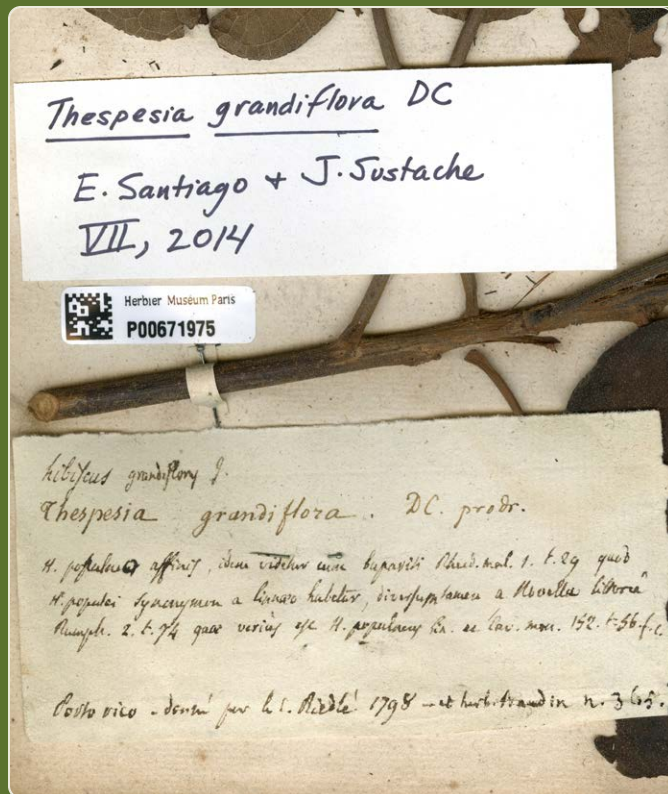 Thespesia grandiflora DC
E. Santiago + J. Sustache
VII, 2014
Herbier Muséum Paris
P00671975
hibiscus grandiflorus J.
Thespesia grandiflora. DC. prodr.
H. populneo affinis, idem videtur cum bupariti Rheed. mal. 1. t. 29 quod
H. populnei synonymon a linnaeo habetur, diversus tamen a Novella littorea
Rumph. 2. t. 74 quae verius est H. populneus Lin. et Cav. mon. 152. t. 56. f. 1.
Porto rico - donné par le c. Riedlé 1798 - et herb. Baudin n. 365.